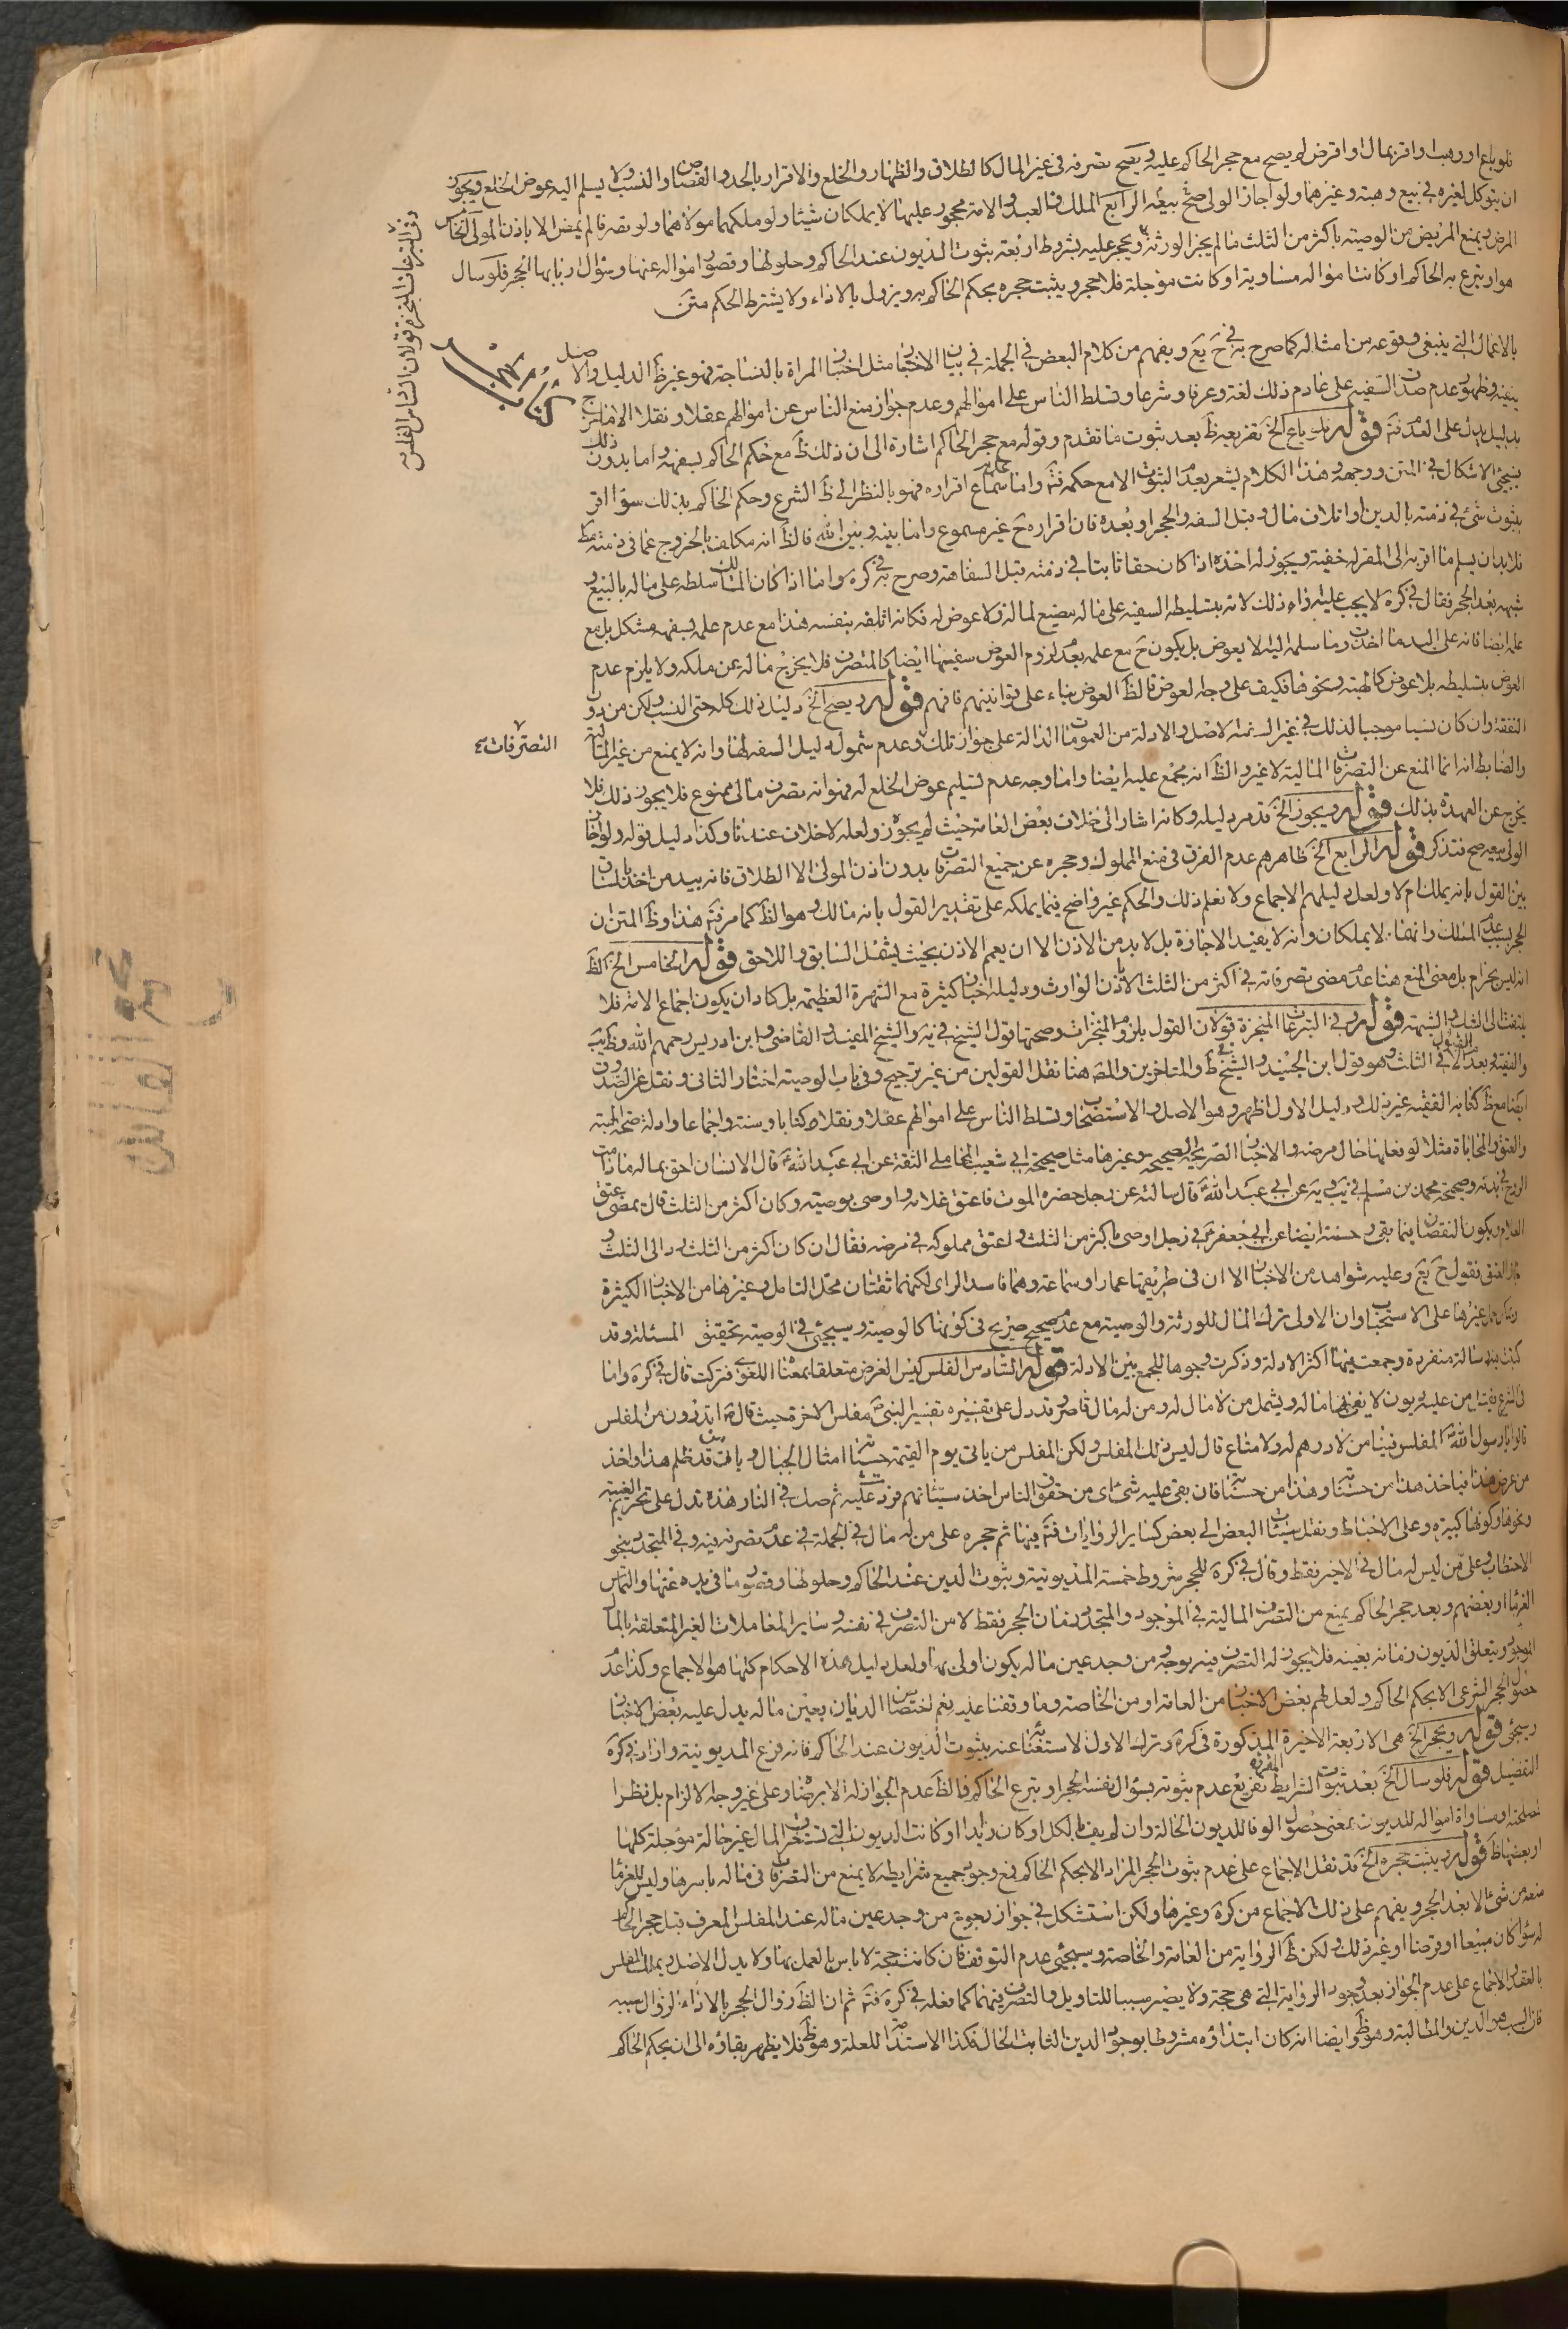 فلو باع او وهب او اقر بمال او اقرض لم يصح مع حجر الحاكم عليه ويصح تصرفه في غير المال كالطلاق والظهار والخلع والاقرار بالحد والقصاص والنسب ولا يسلم اليه عوض الخلع ويجوز
ان يتوكل لغيره في بيع وهبة وغيرهما ولو اجاز الولى صح بيعه الرابع الملك فالعبد والامة محجور عليهما لا يملكان شيئا ولو ملكهما مولاهما ولو تصرفا لم يمض الا باذن المولى الخامس
المرض ويمنع المريض من الوصية باكثر من الثلث ما لم يجز الورثة ويحجر عليه بشروط اربعة ثبوت الديون عند الحاكم وحلولها وقصور امواله عنها وسؤال اربابها الحجر فلو سال
هو او تبرع به الحاكم او كانت امواله مساوية او كانت مؤجلة فلا حجر ويثبت حجره بحكم الحاكم به ويزول بالاداء ولا يشترط الحكم
وفي التبرعات المنجزة قولان السادس الفلس
بالاعمال التي ينبغي وقوعه من امثاله كما صرح به في ويفهم من كلام البعض في الجملة في بيان الاختبار مثل اختبار المراة بالنساجة فهو غير ظ الدليل والاصل
ينفيه وظهور عدم صدق السفيه على عادم ذلك لغة وعرفا وشرعا وتسلط الناس على اموالهم وعدم جواز منع الناس عن اموالهم عقلا ونقلا الا ما خرج
بدليل يدل على العدم قوله فلو باع الخ تفريعه ظ بعد ثبوت ما تقدم وقوله مع حجر الحاكم اشارة الى ان ذلك ظ مع حكم الحاكم بسفهه واما بدون ذلك
فيجيء الاشكال في المتن ووجهه وهذا الكلام يشعر بعدم الثبوت الا مع حكمه فتم واما سماع اقراره فهو بالنظر الى ظ الشرع وحكم الحاكم بذلك سواء اقر
بثبوت شيء في ذمته بالدين او اتلاف مال وقبل السفه والحجر او بعده فان اقراره ح غير مسموع واما بينه وبين الله فالظ انه مكلف بالخروج عما في ذمته
فلا بد ان يسلم ما اقر به الى المقر له خفية ويجوز له اخذه اذا كان حقا ثابتا في ذمته قبل السفاهة وصرح به في كره واما اذا كان المالك سلطه على ماله بالبيع و
شبهه بعد الحجر فقال في كره لا يجب عليه اداء ذلك لانه بتسليطه السفيه على ماله مضيع لماله ولا عوض له فكانه اتلفه بنفسه هذا مع عدم علمه بسفهه مشكل بل مع
علمه ايضا فانه على اليد ما اخذت وما سلمه اليه الا بعوض بل يكون ح مع علمه بعدم لزوم العوض سفيها ايضا كالمتصرف فلا يخرج ماله عن ملكه ولا يلزم عدم
العوض بتسليطه بلا عوض كالهبة ونحوها فكيف على وجه العوض فالظ العوض بناء على قوانينهم فافهم قوله ويصح الخ دليل ذلك كله حتى النسب ولكن من دون
النفقة وان كان نسبا موجبا لذلك في غير السفيه الاصل والادلة من العمومات الدالة على جواز تلك وعدم شمول دليل السفه لها وانه لا يمنع من غير المالية
التصرفات
والضابط انه انما المنع عن التصرفات المالية لا غير والظ انه مجمع عليه ايضا واما وجه عدم تسليم عوض الخلع له فهو انه تصرف مالى ممنوع فلا يجوز ذلك فلا
يخرج عن العهدة بذلك قوله ويجوز الخ قد مر دليله وكانه اشار الى خلاف بعض العامة حيث لم يجوز ولعله لا خلاف عندنا وكذا دليل قوله ولو اجاز
الولى بيعه صح فتذكر قوله الرابع الخ ظاهرهم عدم الفرق في منع المملوك وحجره عن جميع التصرفات بدون اذن المولى الا الطلاق فانه بيد من اخذ بالساق
بين القول بانه يملك ام لا ولعل دليلهم الاجماع ولا نعلم ذلك والحكم غير واضح فيما يملكه على تقدير القول بانه مالك وهو الظ كما مر فتم هذا وظ المتن ان
الحجر بسبب عدم الملك وانهما لا يملكان وانه لا يفيد الاجازة بل لا بد من الاذن الا ان يعمم الاذن بحيث يشمل السابق واللاحق قوله الخامس الخ الظ
انه ليس بحرام بل معنى المنع هنا عدم مضى تصرفاته في اكثر من الثلث الا باذن الوارث ودليله اخبار كثيرة مع الشهرة العظيمة بل كاد ان يكون اجماع الامة فلا
يلتفت الى الشك والشبهة قوله وفي التبرعات المنجزة قولان القول بلزوم المنجزات وصحتها قول الشيخ في يه والشيخ المفيد والقاضي وابن ادريس رحمهم الله
والفقيه بعد القول الا في الثلث وهو قول ابن الجنيد والشيخ في ط والمتاخرين والمص هنا نقل القولين من غير ترجيح وفي باب الوصية اختار الثاني ونقل عن الصدوق
ايضا مع ظ كتابه الفقيه غير ذلك ودليل الاول اظهر وهو الاصل والاستصحاب وتسلط الناس على اموالهم عقلا ونقلا وكتابا وسنة واجماعا وادلة صحة الهبة
والعتق والمحاباة مثلا لو فعلها حال مرضه والاخبار الصريحة الصحيحة وغيرها مثل صحيحة ابي شعيب المحاملي الثقة عن ابي عبد الله ع قال الانسان احق بماله ما دامت
الروح في بدنه وصحيحة محمد بن مسلم في يب ويه عن ابي عبد الله ع قال سالته عن رجل حضره الموت فاعتق غلامه واوصى بوصيته وكان اكثر من الثلث قال يمضى عتق
الغلام ويكون النقصان فيما بقى وحسنته ايضا عن ابي جعفر ع في رجل اوصى باكثر من الثلث واعتق مملوكه في مرضه فقال ان كان اكثر من الثلث رد الى الثلث و
جاز العتق وعليه شواهد من الاخبار الا ان في طريقها عمار او سماعة وهما فاسد الراى لكنهما ثقتان محل التامل وغيرها من الاخبار الكثيرة
غيرها على الاستحباب وان الاولى ترك المال للورثة والوصية مع عدم صحيح صريح في كونها كالوصية وسيجيء في الوصية تحقيق المسئلة وقد
كتبت فيه رسالة منفردة وجمعت فيها اكثر الادلة وذكرت وجوها للجمع بين الادلة قوله السادس الفلس ليس الغرض متعلقا بمعناه اللغوى فتركت قال في كره واما
في الشرع فقيل من عليه ديون لا يفى بها ماله ويشمل من لا مال له ومن له مال قاصر وتدل على تفسيره تفسير النبي ص مفلس الاخرة حيث قال ص اتدرون من المفلس
قالوا يا رسول الله المفلس فينا من لا درهم له ولا متاع قال ليس ذلك المفلس ولكن المفلس من ياتي يوم القيمة حسناته امثال الجبال وياتي قد ظلم هذا واخذ
من عرض هذا فياخذ هذا من حسناته وهذا من حسناته فان بقى عليه شيء اى من حقوق الناس اخذ من سيئاتهم فرد عليه ثم صل في النار هذه تدل على تحريم الغيبة
ونحوها وكونها كبيرة وعلى الاحباط ونقل سيئات البعض الى بعض كساير الروايات فتم فيها ثم حجره على من له مال في الجملة في عدم تصرفه فيه وفي المتجدد بنحو
الاحتطاب وعلى من ليس له مال في الاخير فقط وقال في كره للحجر شروط خمسة المديونية وثبوت الدين عند الحاكم وحلولها وقصور ما في يده عنها والتماس
الغرماء او بعضهم وبعد حجر الحاكم يمنع من التصرف المالية في الموجود والمتجدد زمان الحجر فقط لا من التصرف في نفسه وساير المعاملات الغير المتعلقة بالمال
الموجود ويتعلق الديون زمانه بعينه فلا يجوز له التصرف فيه بوجه ومن وجد عين ماله يكون اولى بها ولعل دليل هذه الاحكام كلها هو الاجماع وكذا عدم
حصول الحجر الشرعى الا بحكم الحاكم ولعل لهم بعض الاخبار من العامة او من الخاصة وما وقفنا عليه نعم اختصاص الديان بعين ماله يدل عليه بعض الاخبار
وسيجئ قوله ويحجر الخ هى الاربعة الاخيرة المذكورة في كره وترك الاول لاستغنائه عنه بثبوت الديون عند الحاكم فانه فرع المديونية واراد في كره
التفصيل قوله فلو سال الخ بعد ثبوت الشرايط المقررة تفريع عدم ثبوته بسؤال نفسه الحجر او بتبرع الحاكم فالظ عدم الجواز له الا برضاه وعلى غير وجه الالزام بل نظرا
لمصلحته او مساواة امواله للديون بمعنى حصول الوفا للديون الحالة وان لم يف بالكل او كان زايدا او كانت الديون التي تستغرق المال غير حالة مؤجلة كلها
او بعضها ظ قوله ويثبت حجره الخ قد نقل الاجماع على عدم ثبوت الحجر المراد الا بحكم الحاكم فمع وجود جميع شرايطه لا يمنع من التصرفات في ماله باسرها وليس للغرماء
منعه من شيء الا بعد الحجر ويفهم على ذلك الاجماع من كره وغيرها ولكن استشكل في جواز رجوع من وجد عين ماله عند المفلس المعرف قبل حجر الحاكم
له سواء كان مبيعا او قرضا او غير ذلك ولكن ظ الرواية من العامة والخاصة وسيجئ عدم التوقف فان كانت حجة لا باس بالعمل بها ولا يدل الاصل وبملك المفلس
بالعقد والاجماع على عدم الجواز بعد وجود الرواية التي هي حجة ولا يضير سببا للتاويل والتصرف فيهما كما فعله في كره فتم ثم ان الظ زوال الحجر بالاداء لزوال سببه
فان السبب هو الدين والمطالبة وهو ظ وايضا انه كان ابتداؤه مشروطا بوجود الدين الثابت الحال فكذا الاستدامة للعلة وهو ظ فلا يظهر بقاؤه الى ان يحكم الحاكم